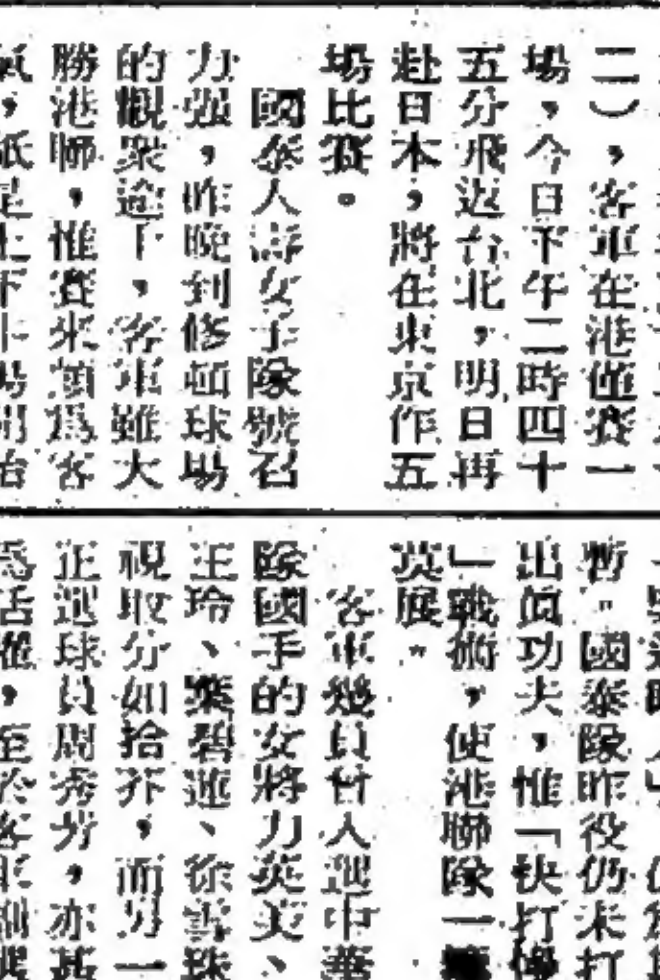 二），客軍在港僅賽一
場，今日下午二時四十
五分飛返台北，明日再
赴日本，將在東京作五
場比賽。
國泰人壽女子隊號召
力强，昨晚到修頓球場
的觀衆逾千，客軍雖大
勝港聯，惟賽來頗爲客
氣，祇是上下半場開始
暫。國泰隊昨役仍未打
出眞功夫，惟「快打
」戰術，使港聯隊一
莫展。
客軍幾員曾入選中華
隊國手的女將力英美、
王玲、葉碧蓮、徐雪珠
視取分如拾芥，而另一
正選球員周秀芳，亦甚
爲活躍，至於客軍